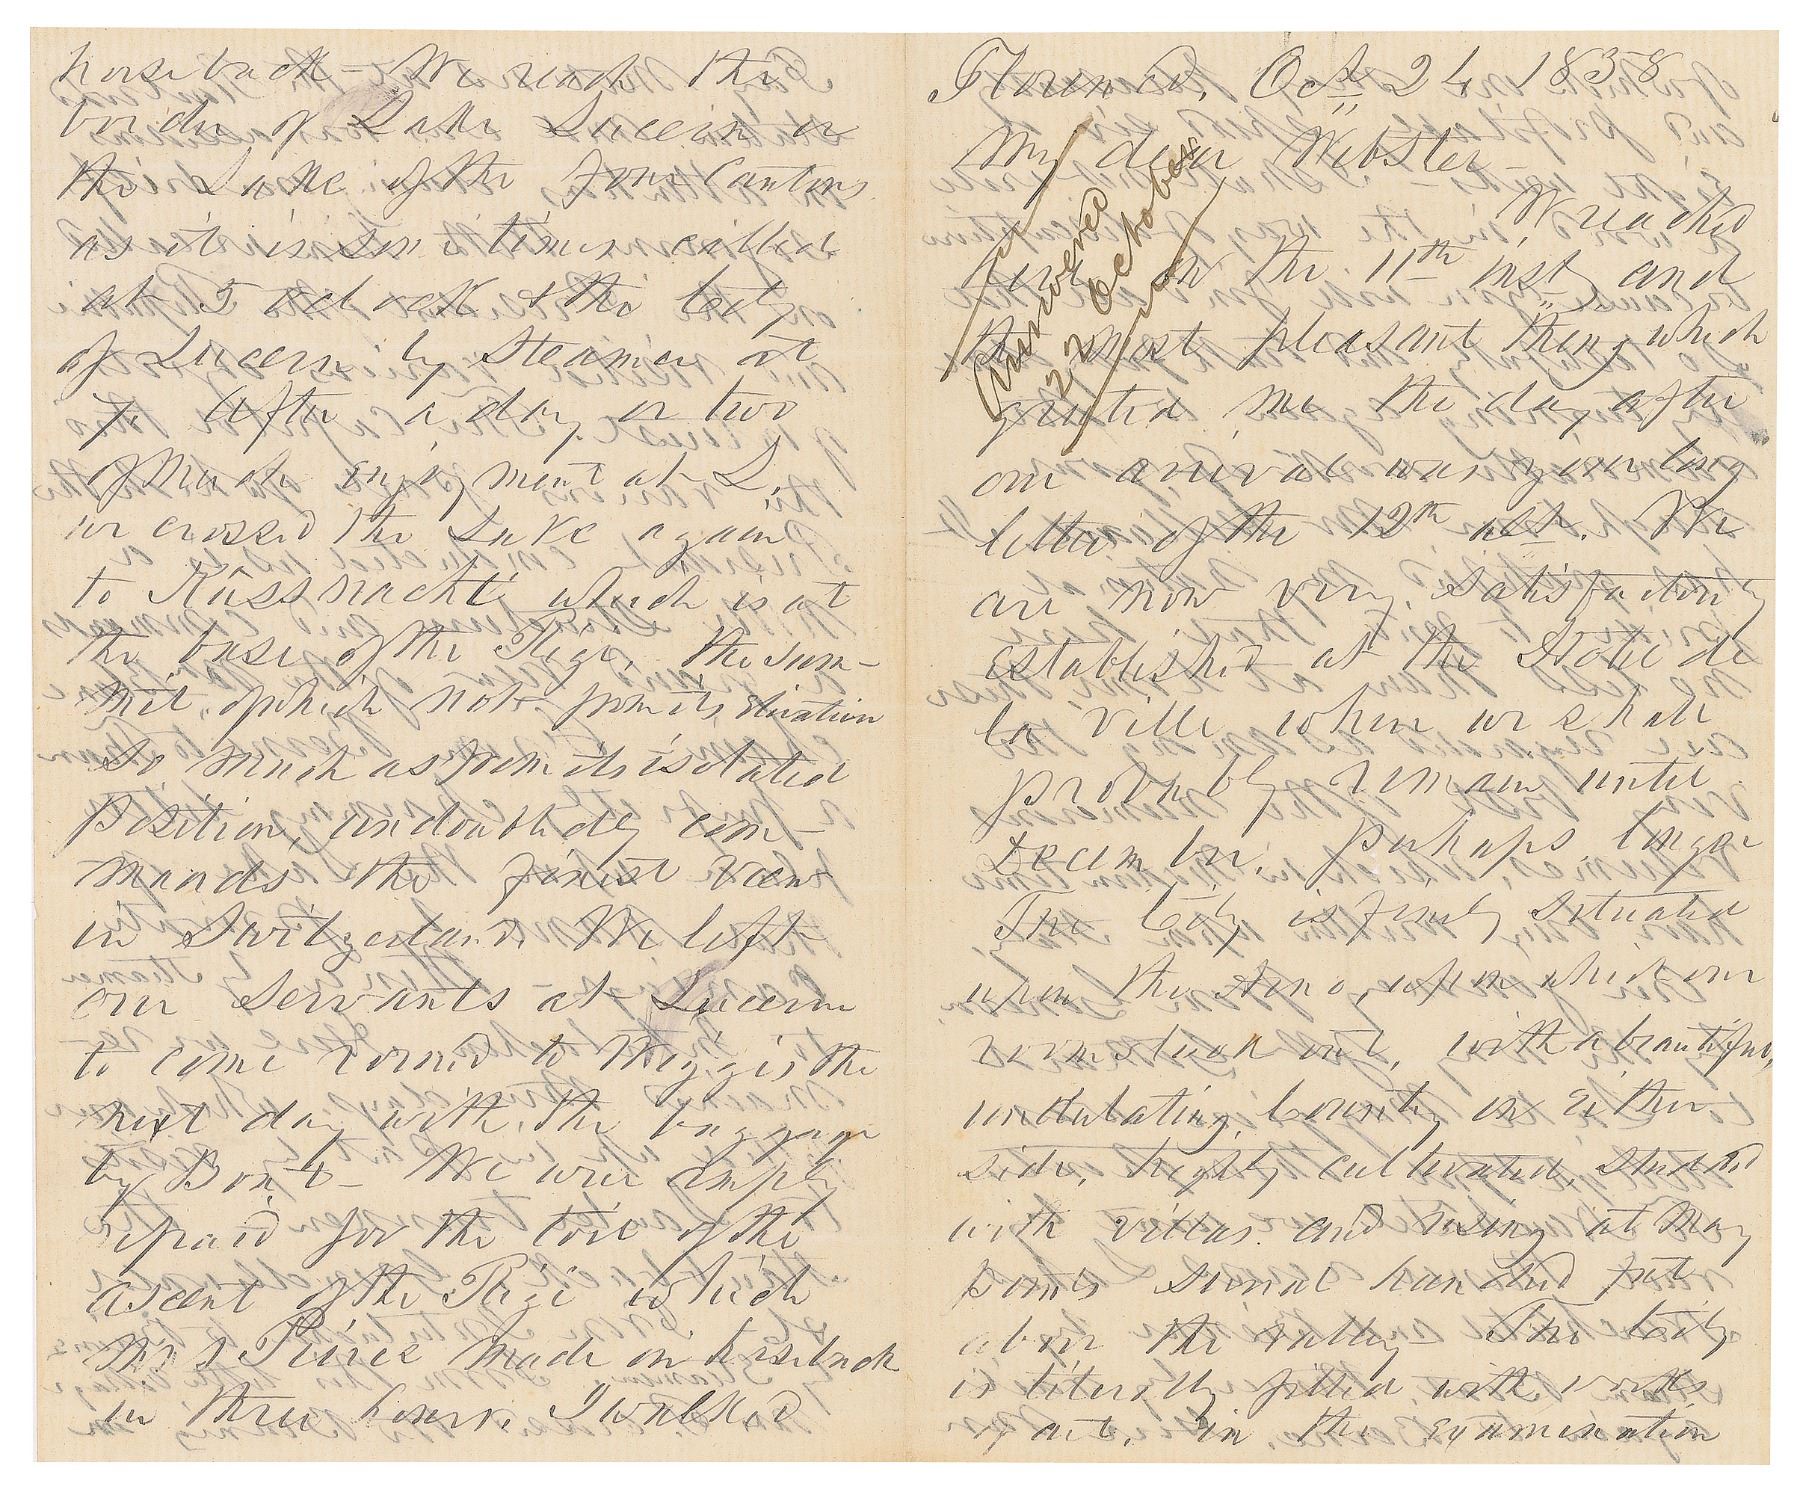 Florence, Oct 24 1858
My dear Webster
We reached
here on the 11th inst, and
the most pleasant thing which
greeted me the day after
our arrival was your long
letter of the 12th ult. We
are now very satisfactorily
established at the Hotel de
la Ville where we shall
probably remain until
December, perhaps longer
The City is finely situated
upon the Arno, upon which our
rooms look out, with a beautiful,
undulating, Country on either
side, highly cultivated, studded
with villas and rising at many
points several hundred feet
above the valley. The City
is literally filled with works
of art, in the examination
Answered
22 October
horseback - We reach the
border of Lake Lucerne or
the Lake of the four Cantons
as it is sometimes called
at 5 oclock & the City
of Lucerne by steamer at
7. After a day or two
of much enjoyment at L.
we crossed the Lake again
to Küssnacht which is at
the base of the Rigi, the sum-
mit of which not from its elevation
so much as from its isolated
position, undoubtedly com-
mands the finest view
in Switzerland. We left
our servants at Lucerne
to come round to Weggis the
next day with the baggage
by Boat - We were amply
repaid for the toil of the
ascent of the Rigi which
Mrs Pierce made on horseback
in three hours. I walked